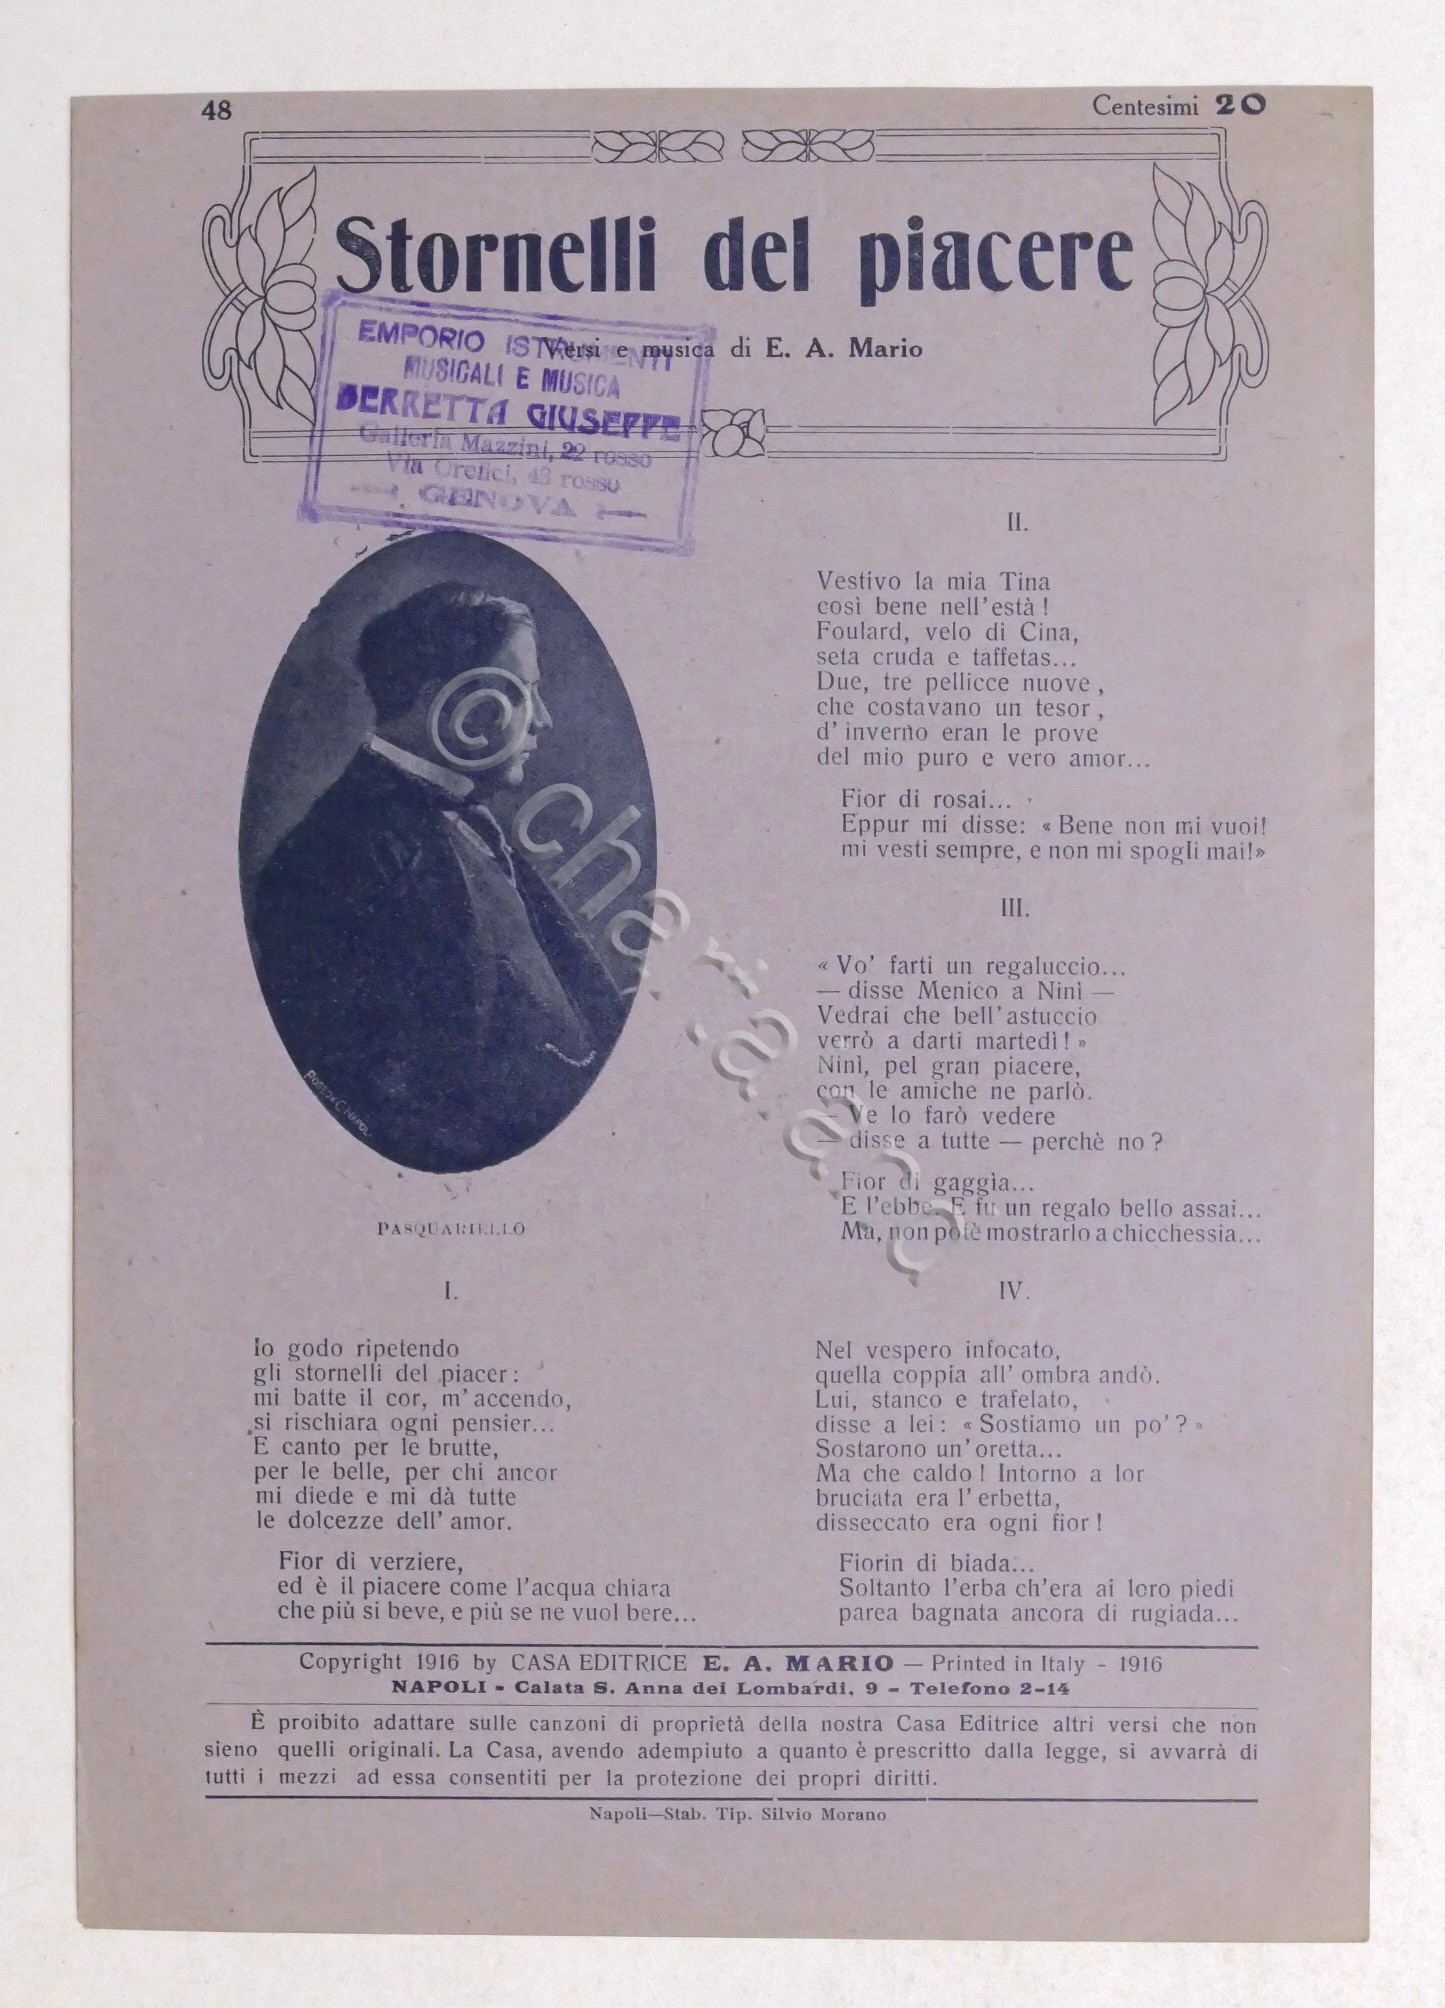 48
Centesimi 20
Stornelli del piacere
Versi e musica di E. A. Mario
EMPORIO ISTRUMENTI
MUSICALI E MUSICA
BERRETTA GIUSEPPE
Galleria Mazzini, 22 rosso
Via Orefici, 43 rosso
GENOVA
PASQUARIELLO
I.
Io godo ripetendo
gli stornelli del piacer :
mi batte il cor, m'accendo,
si rischiara ogni pensier...
E canto per le brutte,
per le belle, per chi ancor
mi diede e mi dà tutte
le dolcezze dell' amor.
Fior di verziere,
ed è il piacere come l'acqua chiara
che più si beve, e più se ne vuol bere...
II.
Vestivo la mia Tina
così bene nell'està !
Foulard, velo di Cina,
seta cruda e taffetas...
Due, tre pellicce nuove ,
che costavano un tesor ,
d' inverno eran le prove
del mio puro e vero amor...
Fior di rosai...
Eppur mi disse: « Bene non mi vuoi!
mi vesti sempre, e non mi spogli mai!»
III.
« Vo' farti un regaluccio...
— disse Menico a Ninì —
Vedrai che bell'astuccio
verrò a darti martedì ! »
Ninì, pel gran piacere,
con le amiche ne parlò.
— Ve lo farò vedere
— disse a tutte — perchè no ?
Fior di gaggìa...
E l'ebbe. E fu un regalo bello assai...
Ma, non potè mostrarlo a chicchessia...
IV.
Nel vespero infocato,
quella coppia all' ombra andò.
Lui, stanco e trafelato,
disse a lei : « Sostiamo un po' ? »
Sostarono un' oretta...
Ma che caldo ! Intorno a lor
bruciata era l' erbetta,
disseccato era ogni fior !
Fiorin di biada...
Soltanto l'erba ch'era ai loro piedi
parea bagnata ancora di rugiada...
Copyright 1916 by CASA EDITRICE E. A. MARIO — Printed in Italy - 1916
NAPOLI - Calata S. Anna dei Lombardi, 9 - Telefono 2-14
È proibito adattare sulle canzoni di proprietà della nostra Casa Editrice altri versi che non
sieno quelli originali. La Casa, avendo adempiuto a quanto è prescritto dalla legge, si avvarrà di
tutti i mezzi ad essa consentiti per la protezione dei propri diritti.
Napoli—Stab. Tip. Silvio Morano